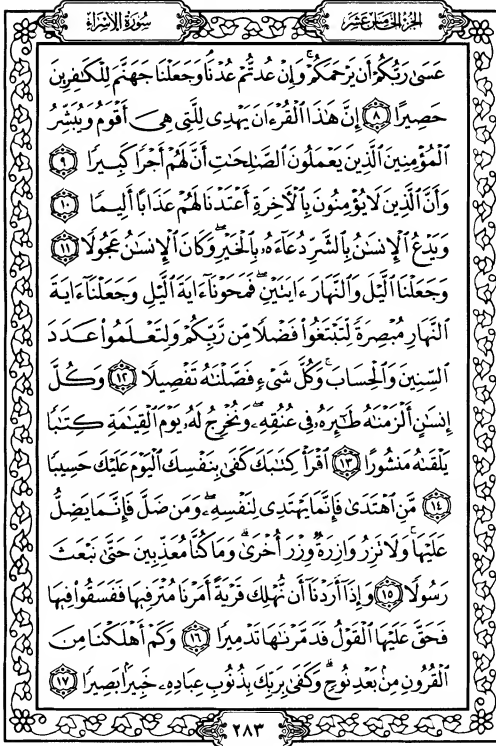 سُورَةُ الإِسْرَاءِ
الجُزْءُ الخَامِسَ عَشَرَ
عَسَىٰ رَبُّكُمْ أَن يَرْحَمَكُمْ ۚ وَإِنْ عُدتُّمْ عُدْنَا ۘ وَجَعَلْنَا جَهَنَّمَ لِلْكَٰفِرِينَ
حَصِيرًا ٨ إِنَّ هَٰذَا ٱلْقُرْءَانَ يَهْدِى لِلَّتِى هِىَ أَقْوَمُ وَيُبَشِّرُ
ٱلْمُؤْمِنِينَ ٱلَّذِينَ يَعْمَلُونَ ٱلصَّٰلِحَٰتِ أَنَّ لَهُمْ أَجْرًا كَبِيرًا ٩
وَأَنَّ ٱلَّذِينَ لَا يُؤْمِنُونَ بِٱلْءَاخِرَةِ أَعْتَدْنَا لَهُمْ عَذَابًا أَلِيمًا ١٠
وَيَدْعُ ٱلْإِنسَٰنُ بِٱلشَّرِّ دُعَآءَهُۥ بِٱلْخَيْرِ ۖ وَكَانَ ٱلْإِنسَٰنُ عَجُولًا ١١
وَجَعَلْنَا ٱلَّيْلَ وَٱلنَّهَارَ ءَايَتَيْنِ ۖ فَمَحَوْنَآ ءَايَةَ ٱلَّيْلِ وَجَعَلْنَآ ءَايَةَ
ٱلنَّهَارِ مُبْصِرَةً لِّتَبْتَغُوا۟ فَضْلًا مِّن رَّبِّكُمْ وَلِتَعْلَمُوا۟ عَدَدَ
ٱلسِّنِينَ وَٱلْحِسَابَ ۚ وَكُلَّ شَىْءٍ فَصَّلْنَٰهُ تَفْصِيلًا ١٢ وَكُلَّ
إِنسَٰنٍ أَلْزَمْنَٰهُ طَٰٓئِرَهُۥ فِى عُنُقِهِۦ ۖ وَنُخْرِجُ لَهُۥ يَوْمَ ٱلْقِيَٰمَةِ كِتَٰبًا
يَلْقَىٰهُ مَنشُورًا ١٣ ٱقْرَأْ كِتَٰبَكَ كَفَىٰ بِنَفْسِكَ ٱلْيَوْمَ عَلَيْكَ حَسِيبًا
١٤ مَّنِ ٱهْتَدَىٰ فَإِنَّمَا يَهْتَدِى لِنَفْسِهِۦ ۖ وَمَن ضَلَّ فَإِنَّمَا يَضِلُّ
عَلَيْهَا ۚ وَلَا تَزِرُ وَازِرَةٌ وِزْرَ أُخْرَىٰ ۗ وَمَا كُنَّا مُعَذِّبِينَ حَتَّىٰ نَبْعَثَ
رَسُولًا ١٥ وَإِذَآ أَرَدْنَآ أَن نُّهْلِكَ قَرْيَةً أَمَرْنَا مُتْرَفِيهَا فَفَسَقُوا۟ فِيهَا
فَحَقَّ عَلَيْهَا ٱلْقَوْلُ فَدَمَّرْنَٰهَا تَدْمِيرًا ١٦ وَكَمْ أَهْلَكْنَا مِنَ
ٱلْقُرُونِ مِنۢ بَعْدِ نُوحٍ ۗ وَكَفَىٰ بِرَبِّكَ بِذُنُوبِ عِبَادِهِۦ خَبِيرًۢا بَصِيرًا ١٧
٢٨٣